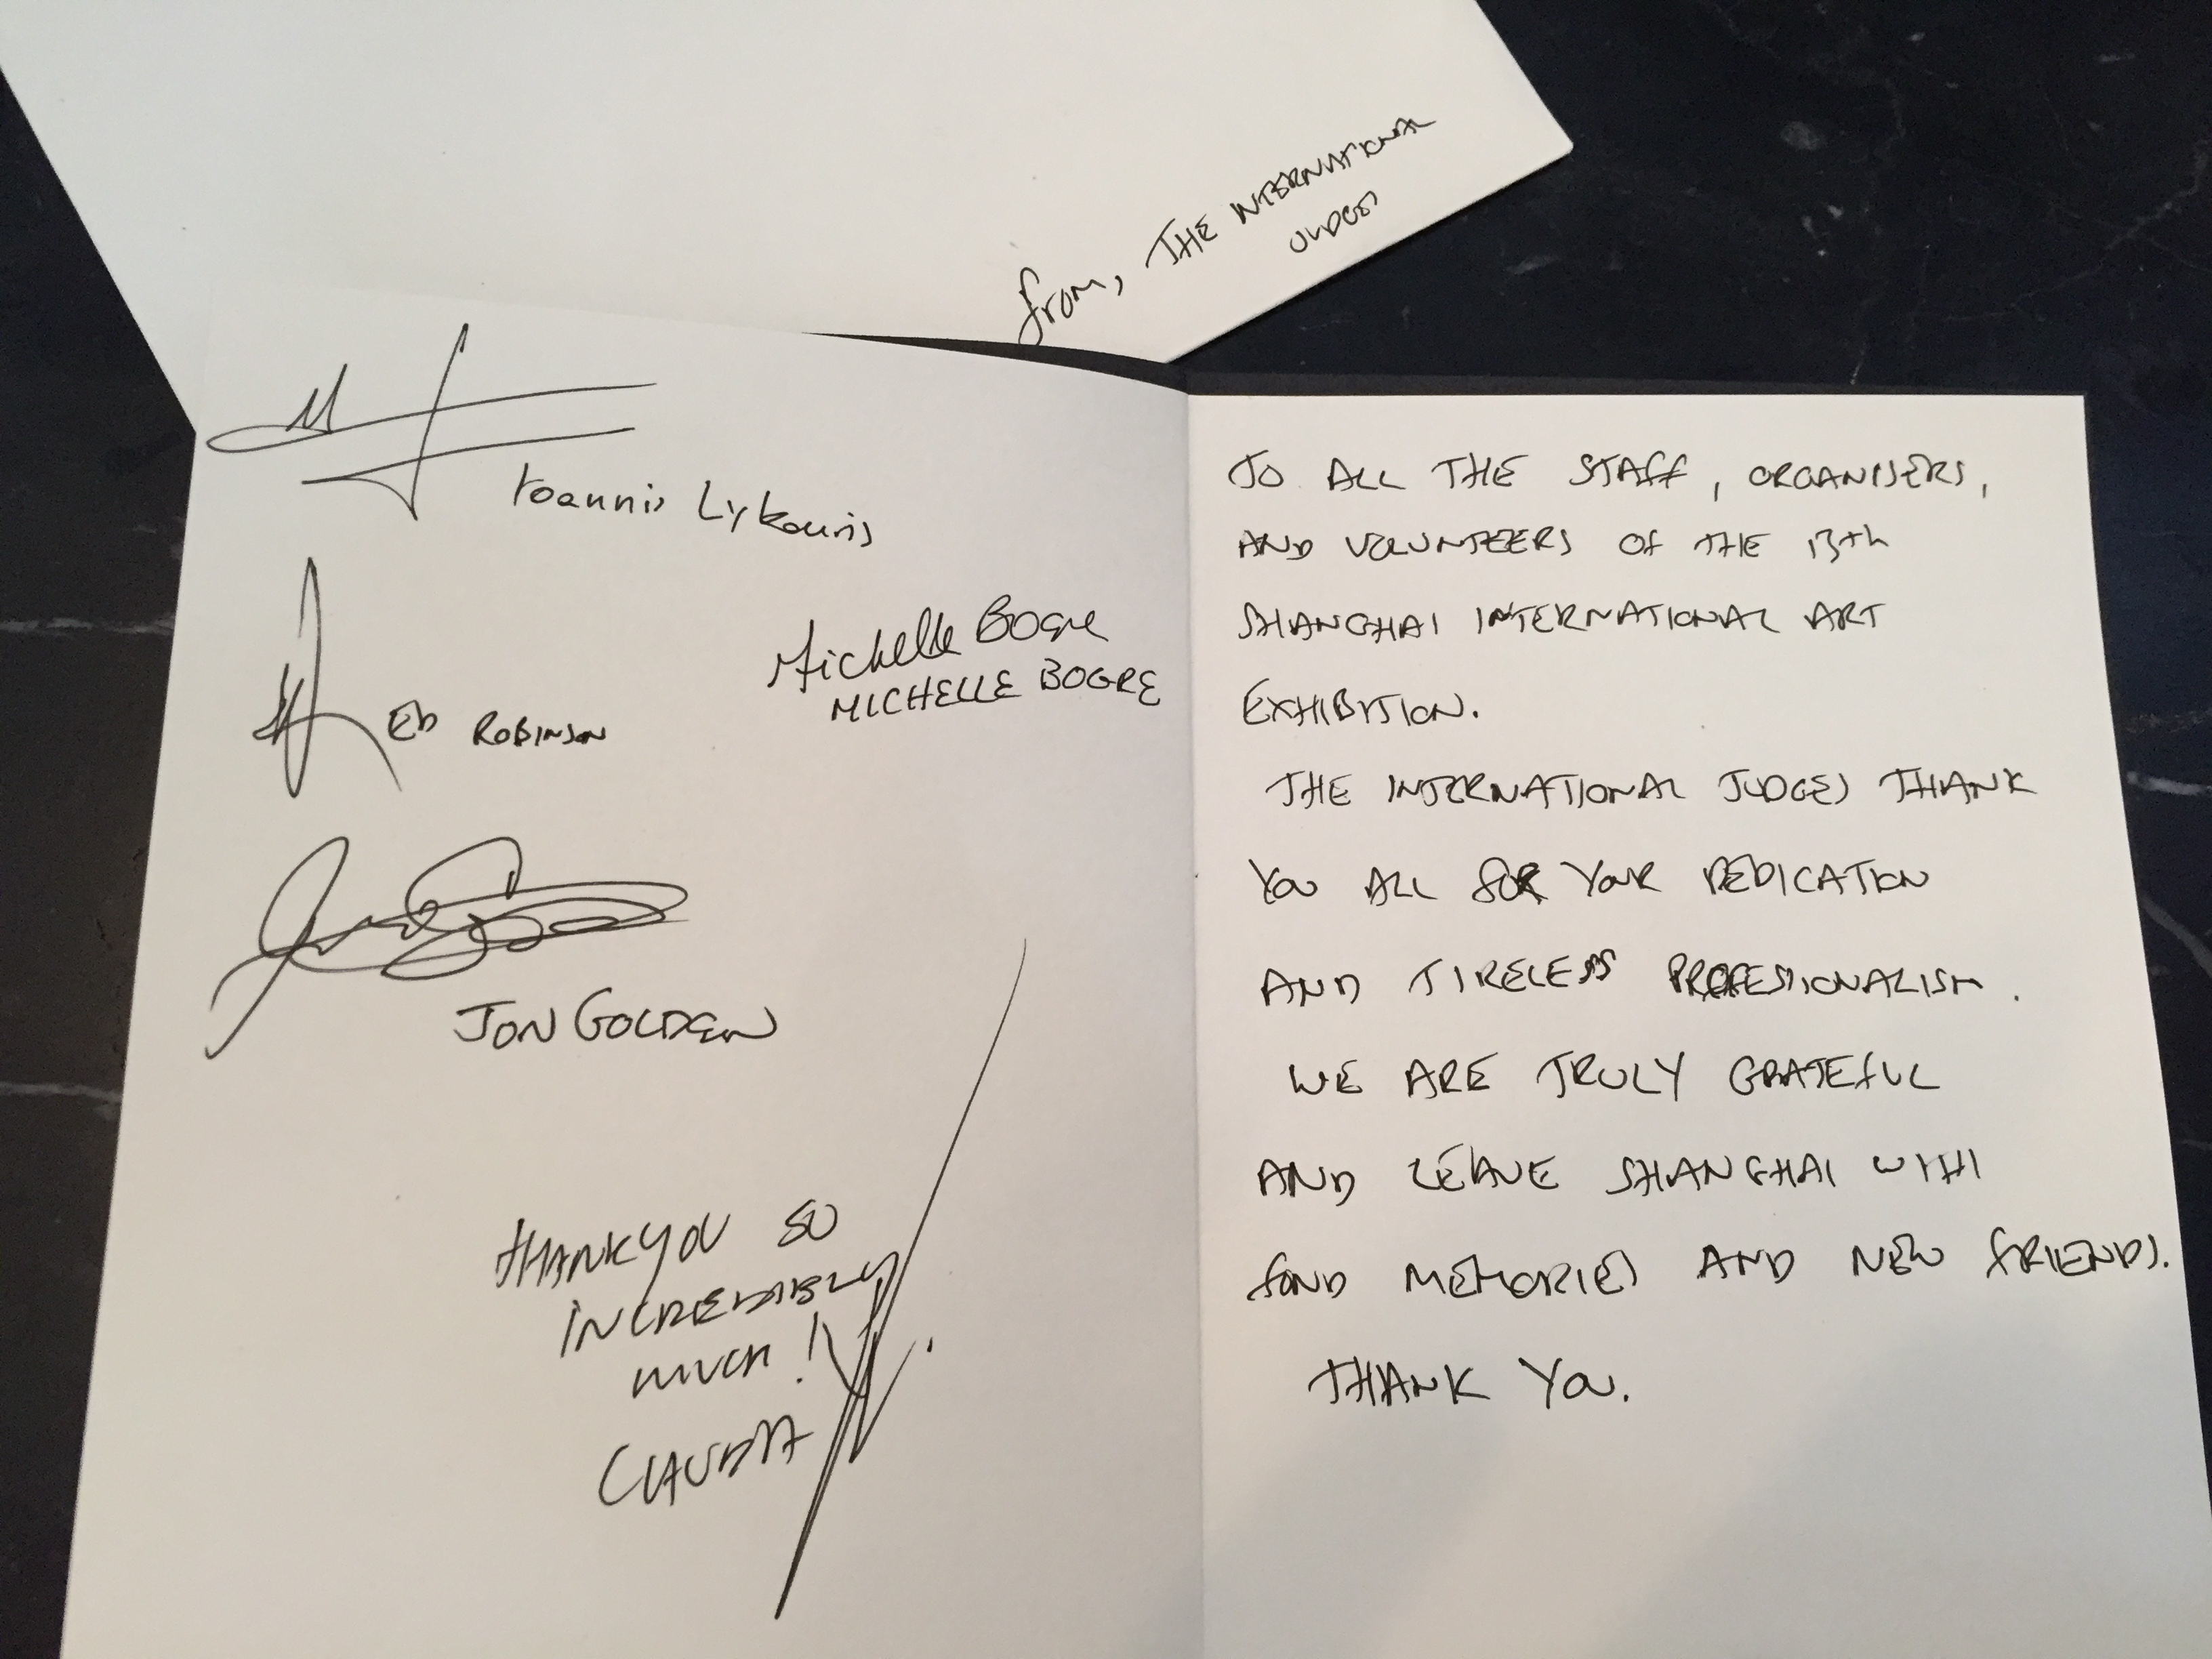 from, THE INTERNATIONAL
JUDGES
Ioannis Lykouris
Michelle Bogre
MICHELLE BOGRE
ED ROBINSON
JON GOLDEN
THANK YOU SO
INCREDIBLY
much!
CLAUDIA
TO ALL THE STAFF, ORGANISERS,
AND VOLUNTEERS OF THE 13th
SHANGHAI INTERNATIONAL ART
EXHIBITION.
THE INTERNATIONAL JUDGES THANK
YOU ALL FOR YOUR DEDICATION
AND TIRELESS PROFESSIONALISM.
WE ARE TRULY GRATEFUL
AND LEAVE SHANGHAI WITH
FOND MEMORIES AND NEW FRIENDS.
THANK YOU.